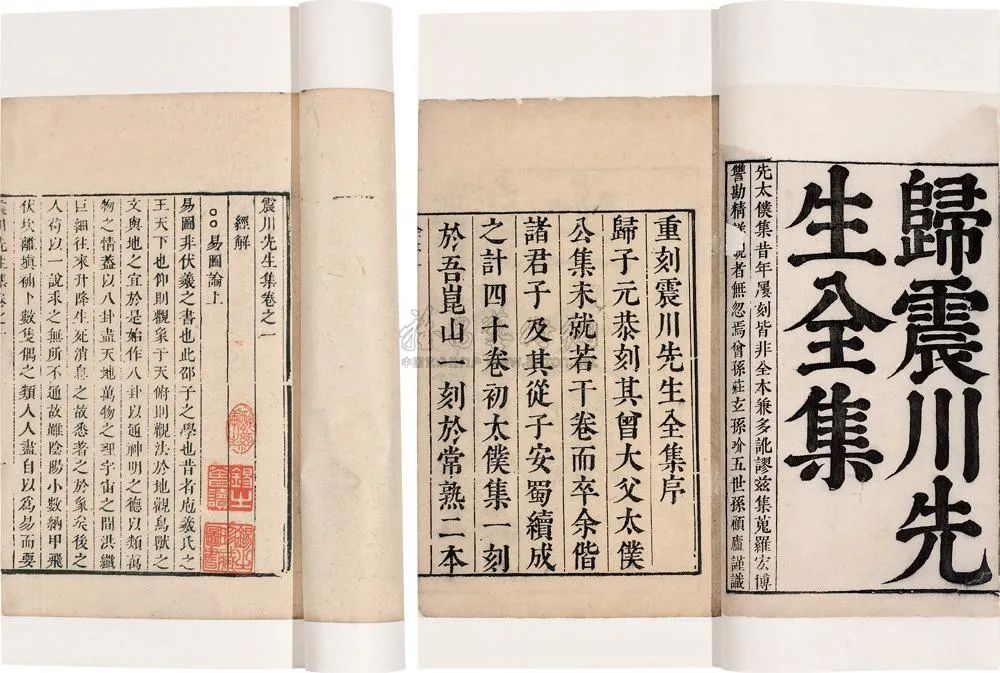 歸震川先
生全集
先太僕集昔年屢刻皆非全本兼多訛謬茲集蒐羅宏博
讐勘精
者無忽焉曾孫莊玄孫玠五世孫顧廬謹識
重刻震川先生全集序
歸子元恭刻其曾大父太僕
公集未就若干卷而卒余偕
諸君子及其從子安蜀續成
之計四十卷初太僕集一刻
於吾崑山一刻於常熟二本
震川先生集卷之一
經解
易圖論上
易圖非伏羲之書也此邵子之學也昔者庖羲氏之
王天下也仰則觀象于天俯則觀法於地觀鳥獸之
文與地之宜於是始作八卦以通神明之德以類萬
物之情蓋以八卦盡天地萬物之理宇宙之間洪纖
巨細往來升降生死消息之故悉著之於象矣後之
人苟以一說求之無所不通故雖陰陽小數納甲飛
伏坎離填補卜數隻偶之類人人盡自以爲易而要
震川先生集卷之一